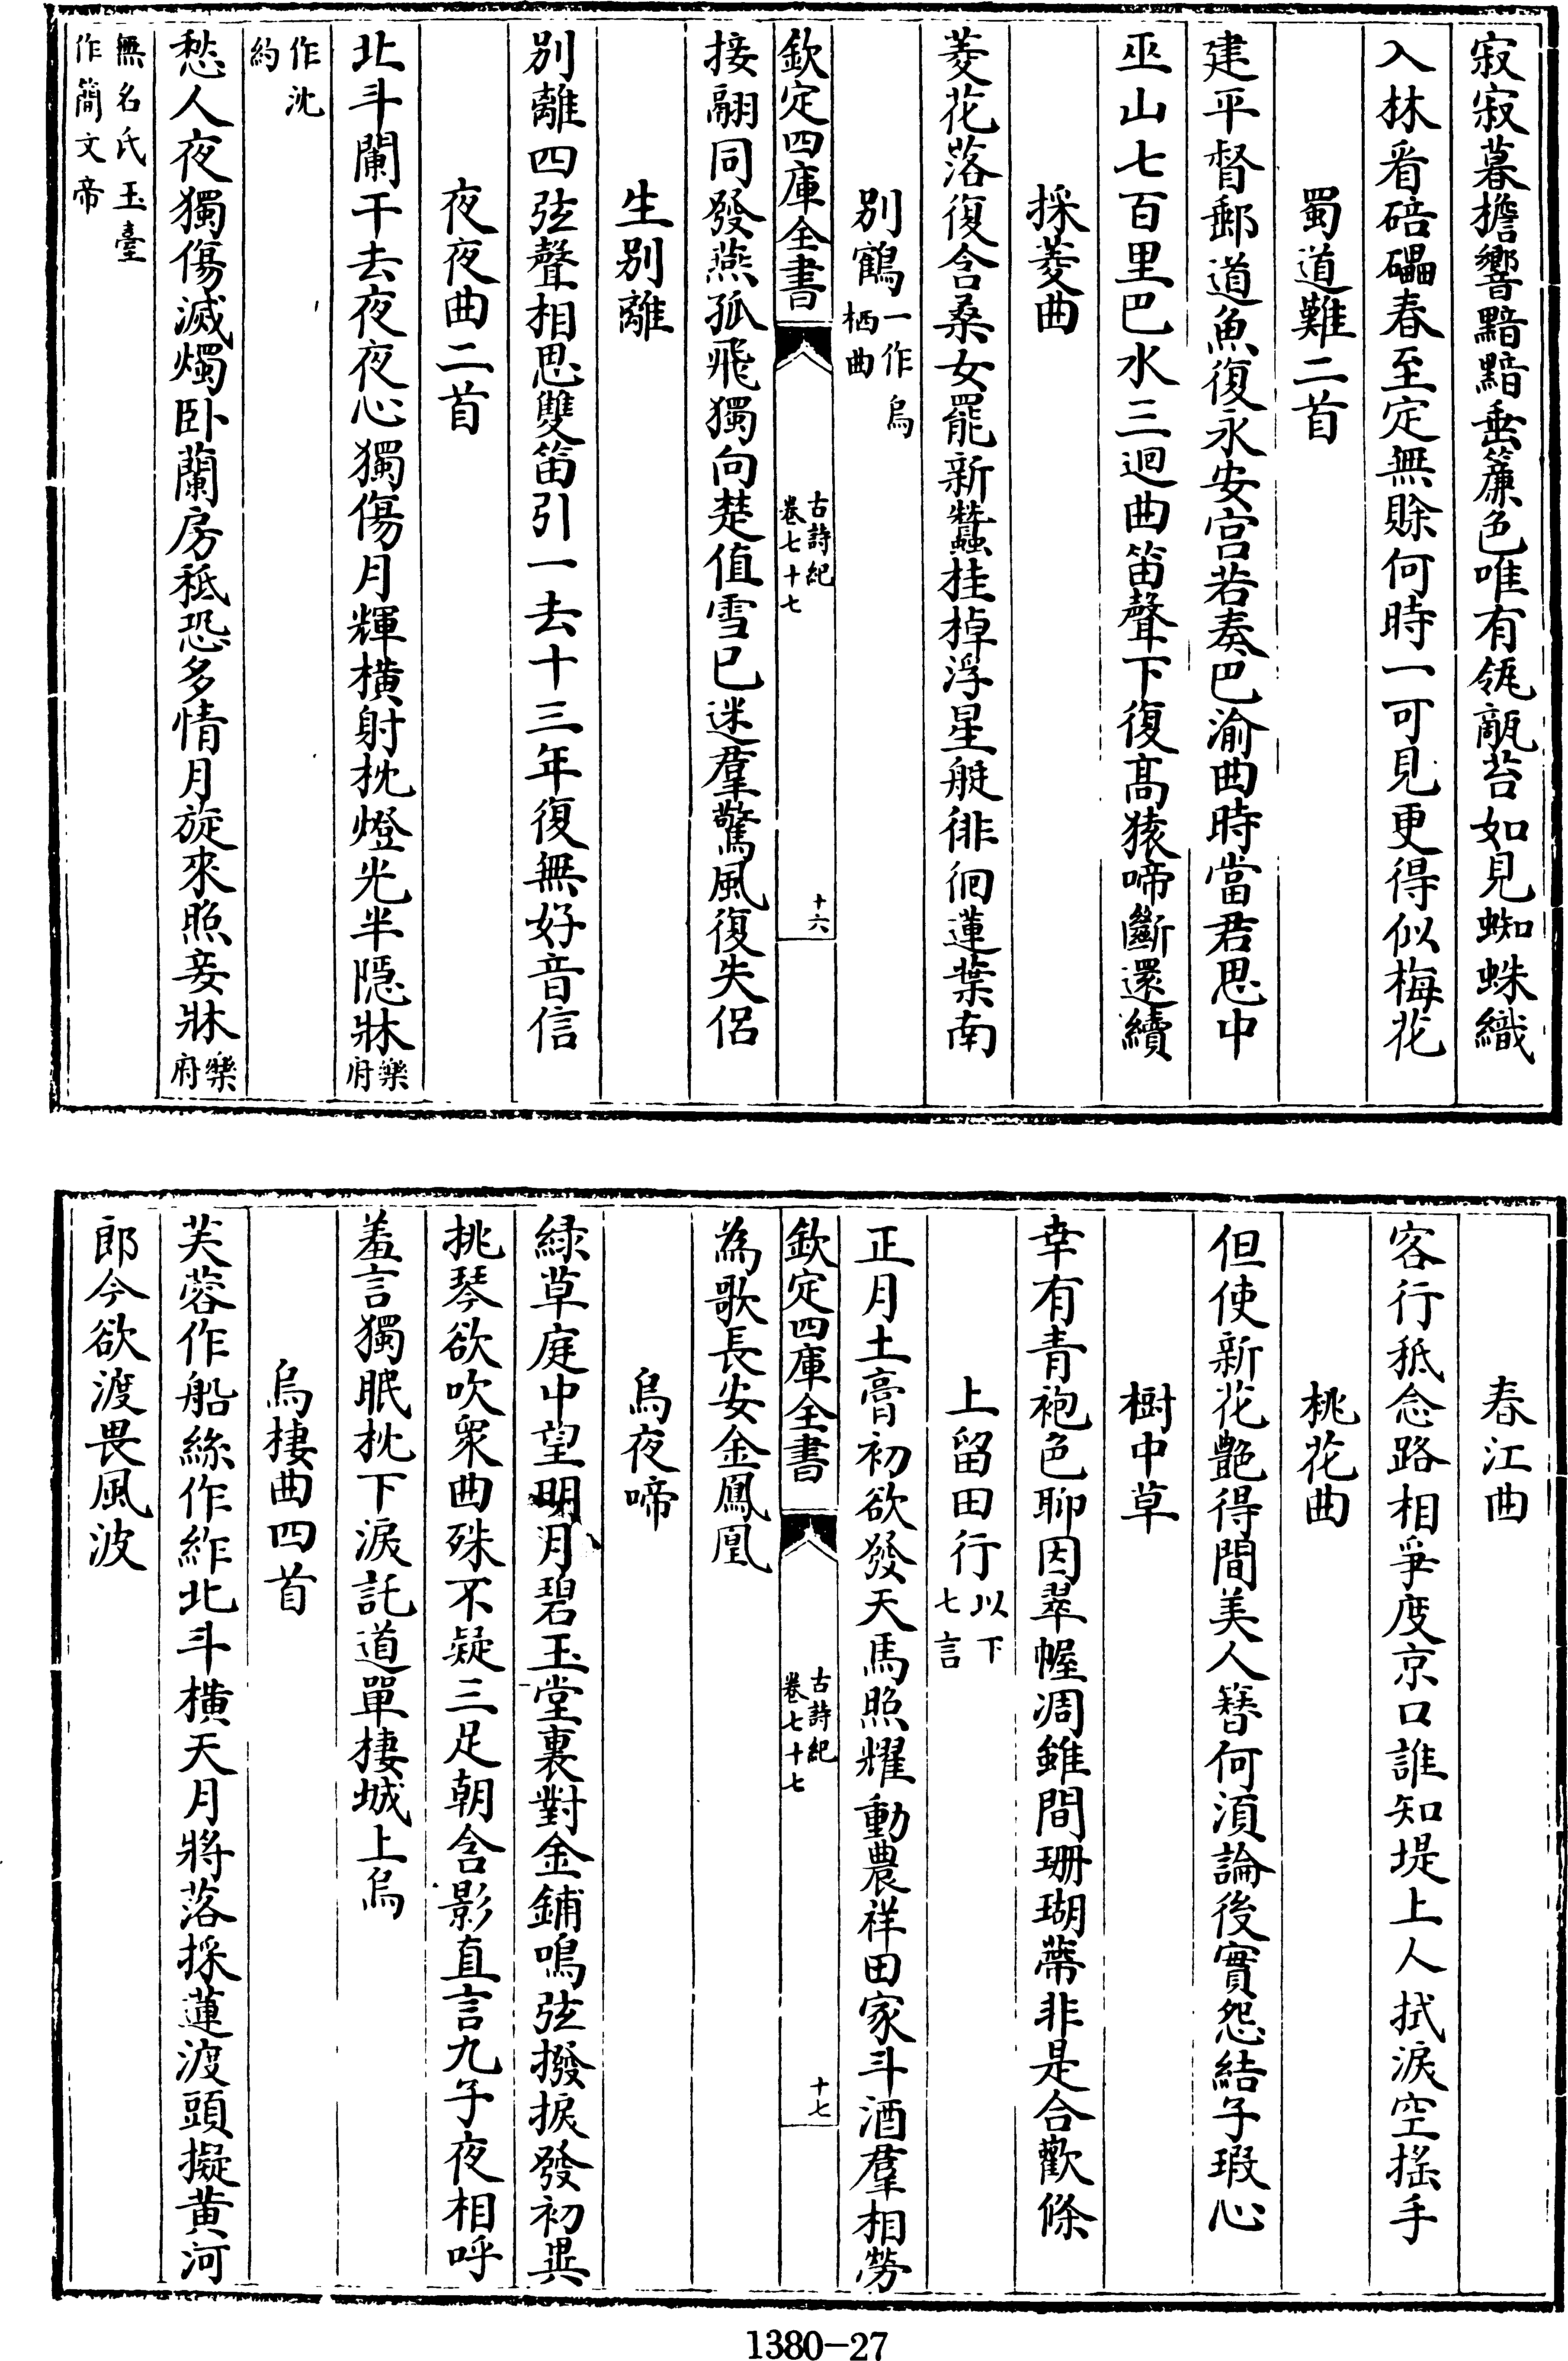 寂寂暮檐響黯黯垂簾色唯有瓴甋苔如見蜘蛛織
入林看碚礧春至定無賖何時一可見更得似梅花
蜀道難二首
建平督郵道魚復永安宫若奏巴渝曲時當君思中
巫山七百里巴水三迴曲笛聲下復髙猿啼斷還續
採菱曲
菱花落復含桑女罷新蠶桂棹浮星艇徘徊蓮葉南
别鶴一作烏栖曲
欽定四庫全書
古詩紀
卷七十七
十六
接翮同發燕孤飛獨向楚值雪已迷羣驚風復失侣
生别離
别離四弦聲相思雙笛引一去十三年復無好音信
夜夜曲二首
北斗闌干去夜夜心獨傷月輝横射枕燈光半隠牀樂府
作沈約
愁人夜獨傷滅燭卧蘭房秪恐多情月旋來照妾牀樂府
無名氏玉臺作簡文帝
春江曲
客行秪念路相爭度京口誰知堤上人拭淚空摇手
桃花曲
但使新花艶得間美人簪何須論後實怨結子瑕心
樹中草
幸有青袍色聊因翠幄凋雖間珊瑚蔕非是合歡條
上留田行以下七言
正月土膏初欲發天馬照耀動農祥田家斗酒羣相勞
欽定四庫全書
古詩紀
卷七十七
十七
為歌長安金鳳凰
烏夜啼
緑草庭中望明月碧玉堂裏對金鋪鳴弦撥捩發初異
挑琴欲吹衆曲殊不疑三足朝含影直言九子夜相呼
羞言獨眠枕下淚託道單棲城上烏
烏棲曲四首
芙蓉作船絲作䋏北斗横天月將落採蓮渡頭擬黄河
郎今欲渡畏風波
1380-27